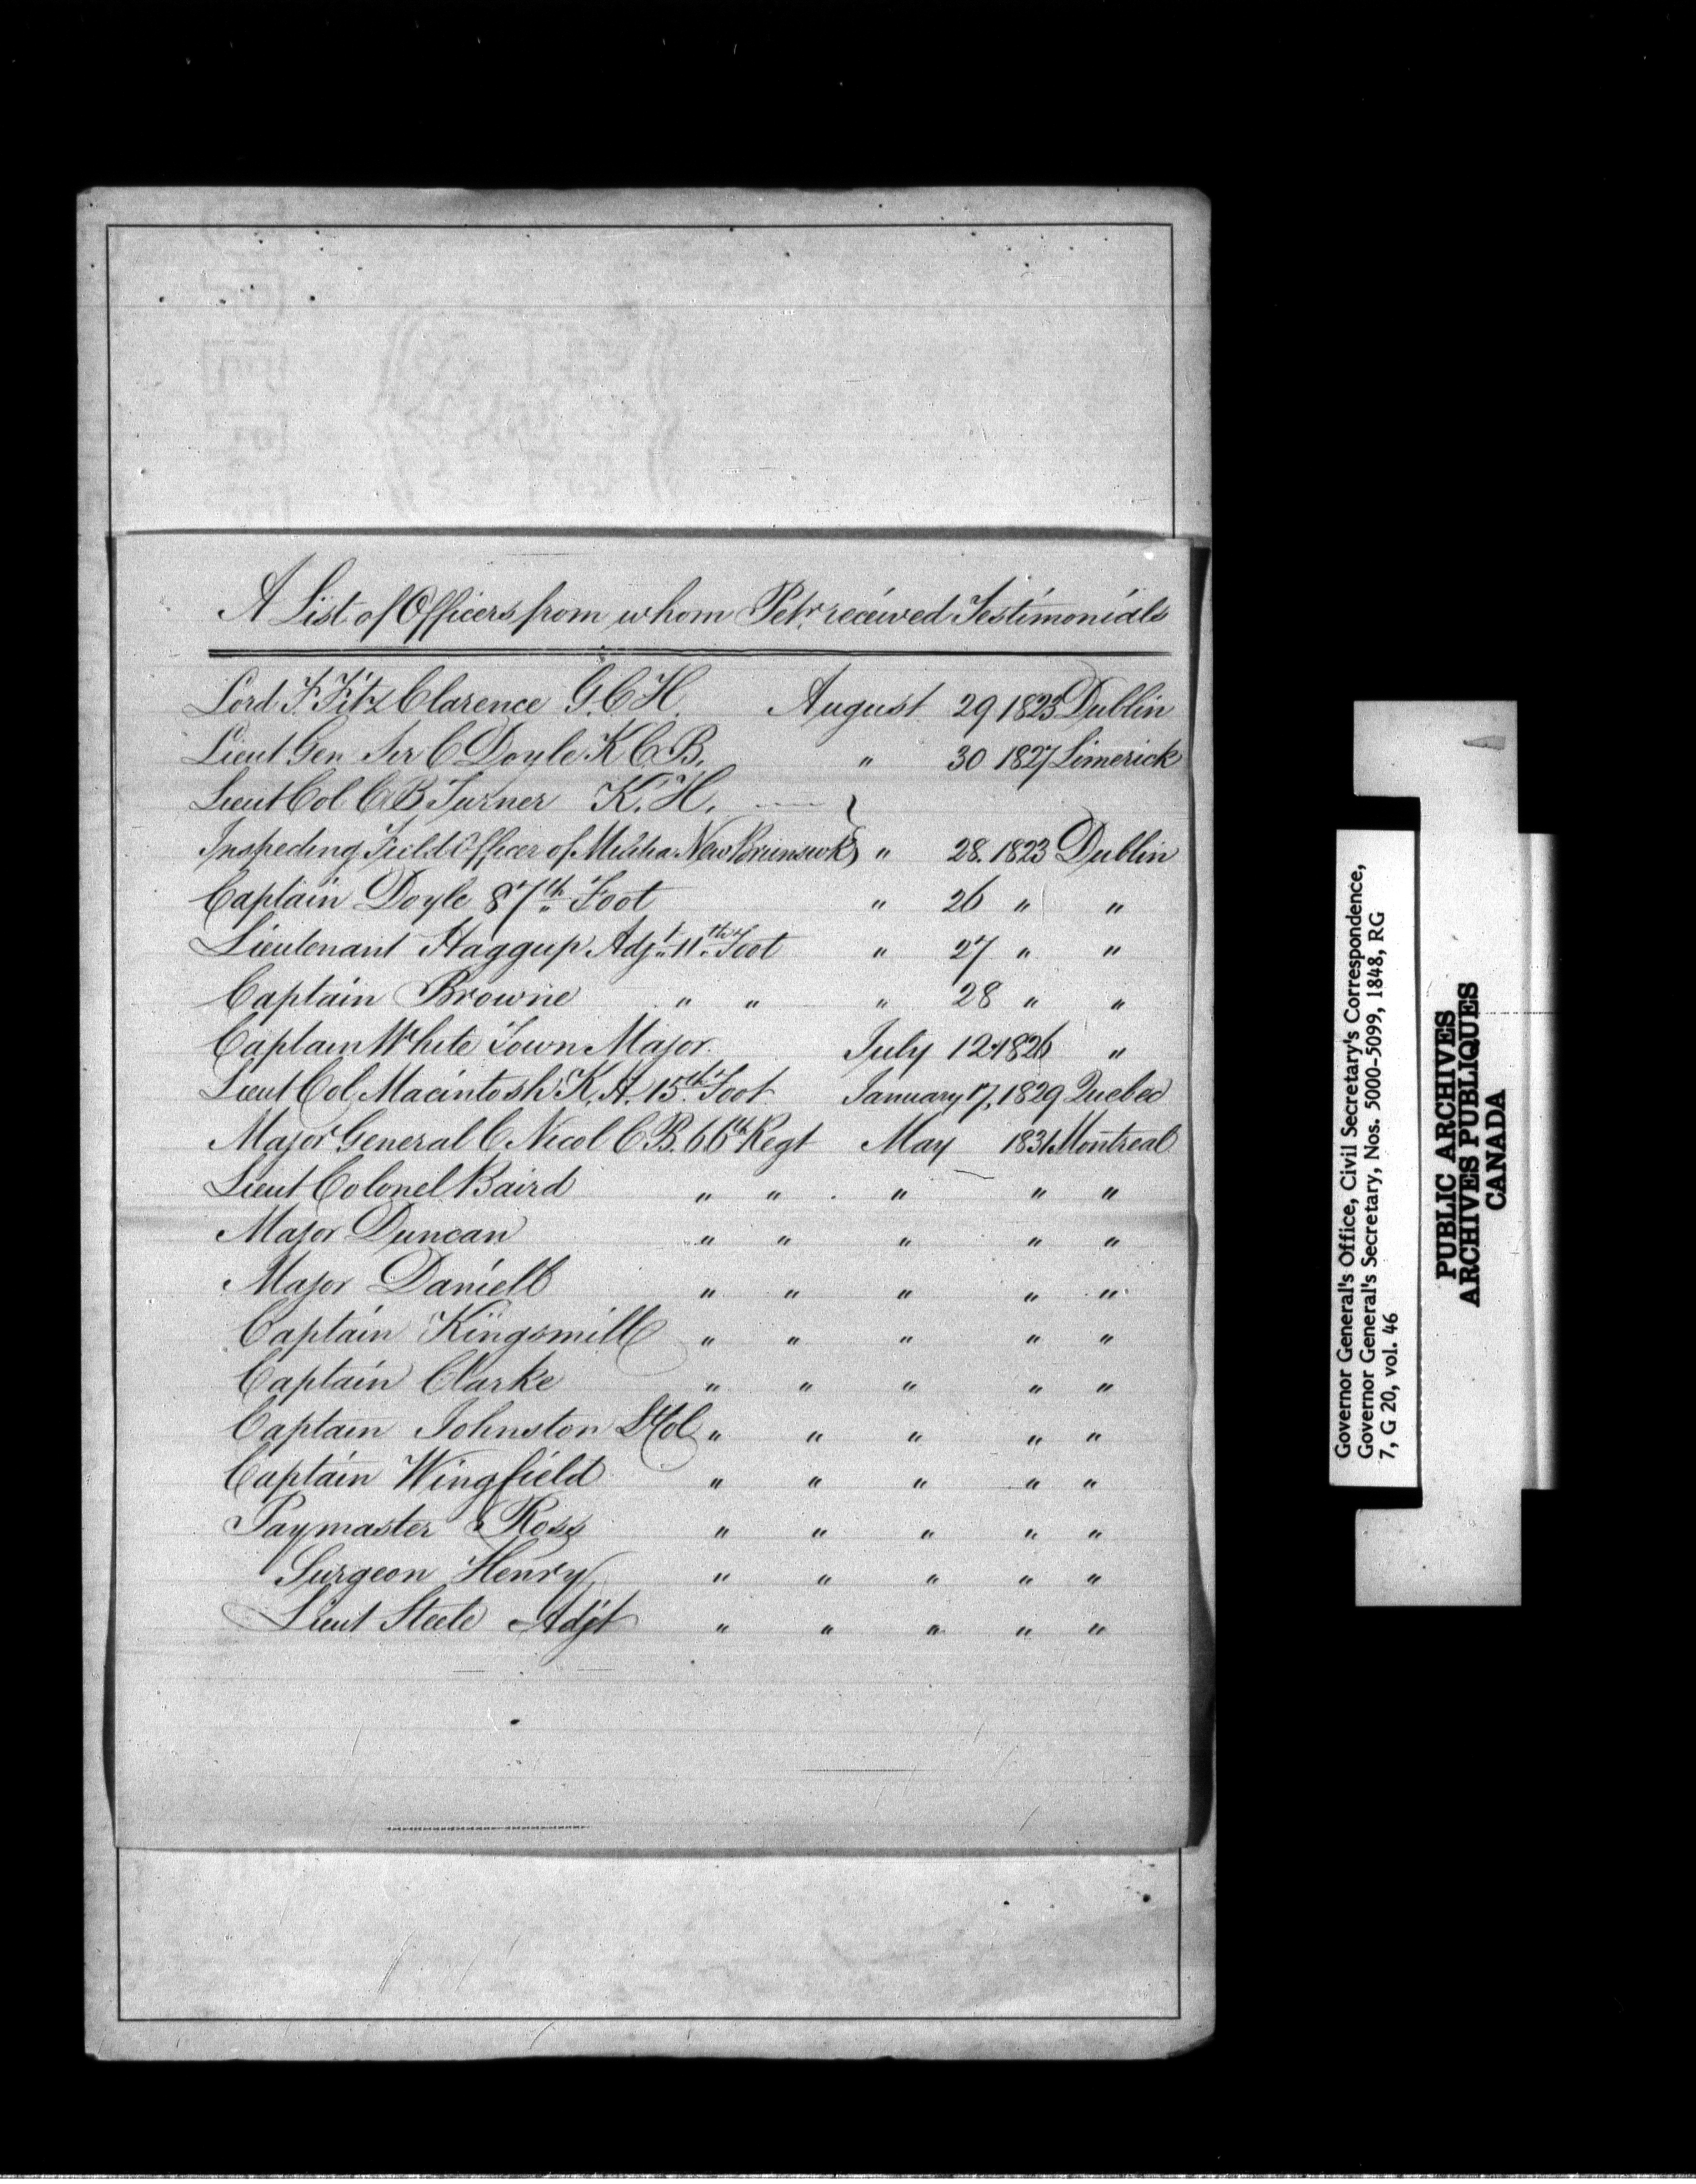 A List of Officers from whom Petr. received Testimonials
Lord F. Fitz Clarence G.C.H. August 29 1825 Dublin
Lieut Gen Sir C Doyle K C B. " 30 1827 Limerick
Lieut Col C B Turner K. H. }
Inspecting Field Officer of Militia New Brunswk } " 28. 1823 Dublin
Captain Doyle 87th Foot " 26 " "
Lieutenant Haggup Adjt. 11th Foot " 27 " "
Captain Browne " " " 28 " "
Captain White Town Major. July 12 1826 "
Lieut Col Macintosh K. H. 15th Foot January 17, 1829 Quebec
Major General C Nicol C. B. 66th Regt May 1831 Montreal
Lieut Colonel Baird " " " " "
Major Duncan " " " " "
Major Daniell " " " " "
Captain Kingsmill " " " " "
Captain Clarke " " " " "
Captain Johnston Lt Col " " " " "
Captain Wingfield " " " " "
Paymaster Ross " " " " "
Surgeon Henry " " " " "
Lieut Steele Adjt " " " " "
Governor General's Office, Civil Secretary's Correspondence,
Governor General's Secretary, Nos. 5000-5099, 1848, RG
7, G 20, vol. 46
PUBLIC ARCHIVES
ARCHIVES PUBLIQUES
CANADA